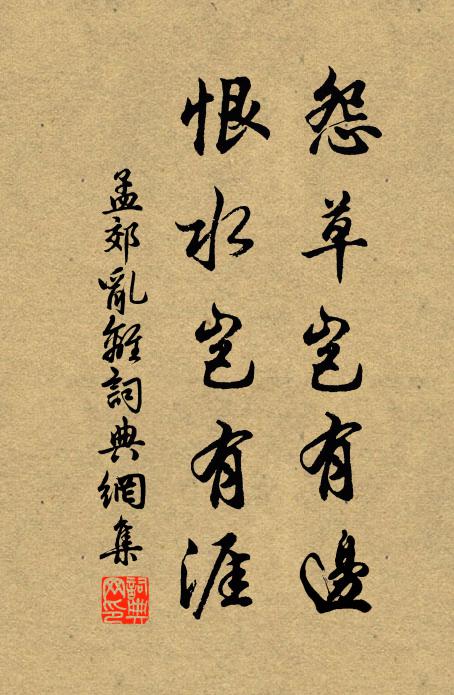 怨草岂有邊
恨水岂有涯
孟郊亂離詞典網集
詞典網印